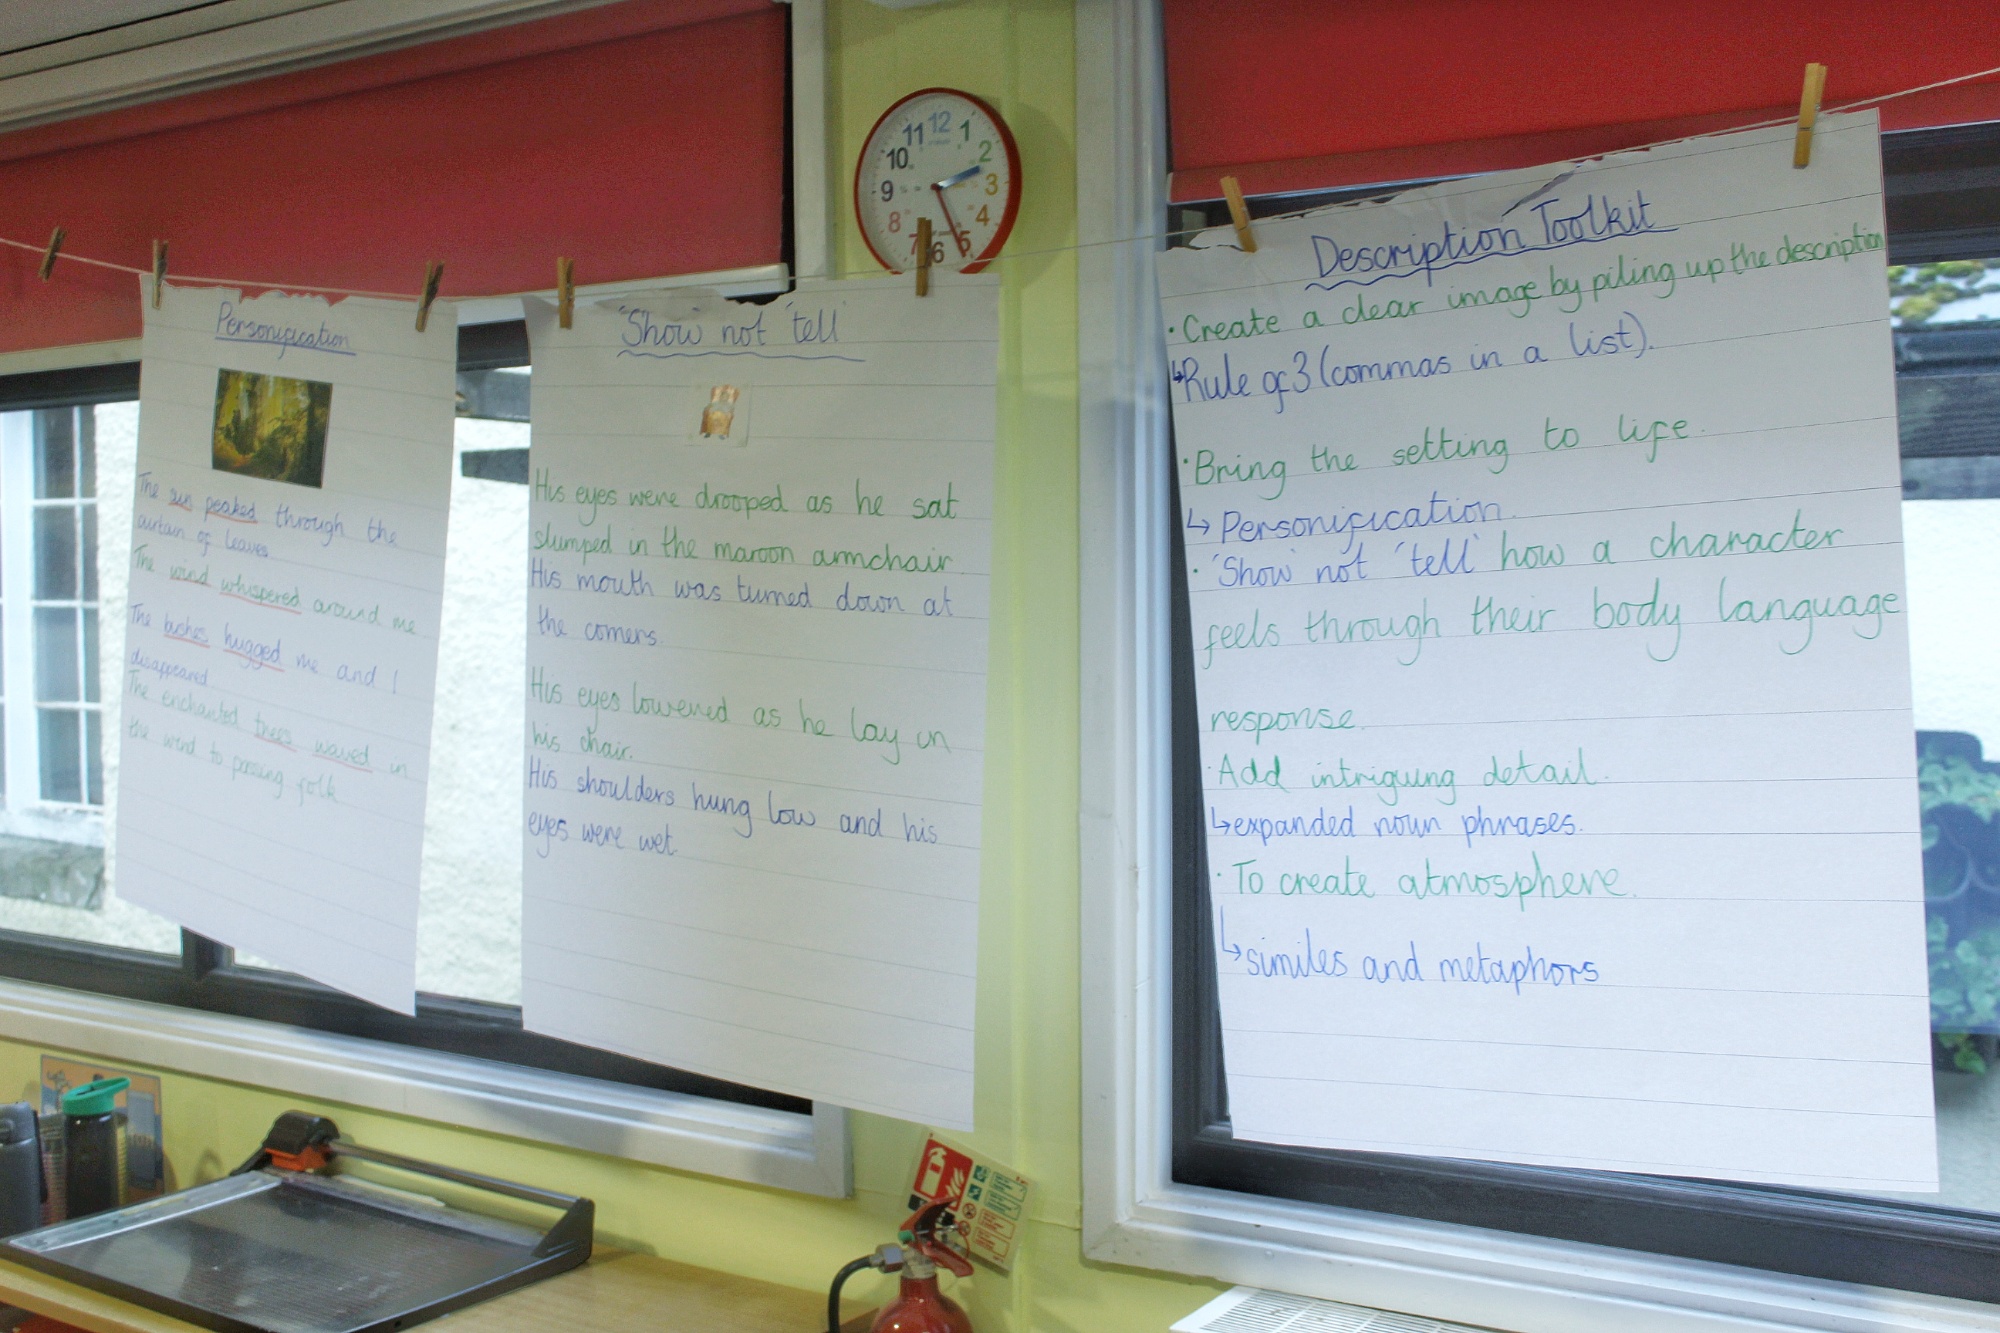 Personification
The sun peaked through the
curtain of leaves
The wind whispered around me
The bushes hugged me and I
disappeared
The enchanted trees waved in
the wind to passing folk
'Show' not 'tell'
His eyes were drooped as he sat
slumped in the maroon armchair
His mouth was turned down at
the corners.
His eyes lowered as he lay in
his chair.
His shoulders hung low and his
eyes were wet.
12
1
2
3
4
5
6
7
8
9
10
11
Description Toolkit
· Create a clear image by piling up the description
↳ Rule of 3 (commas in a list).
· Bring the setting to life.
↳ Personification.
· 'Show' not 'tell' how a character
feels through their body language
response.
· Add intriguing detail.
↳ expanded noun phrases.
· To create atmosphere.
↳ similes and metaphors